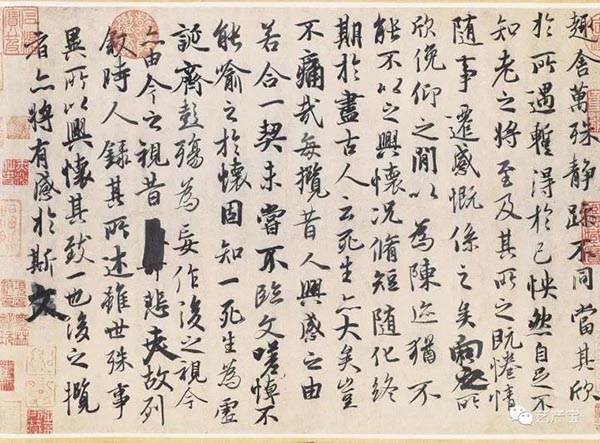 趣舍萬殊静躁不同當其欣
於所遇蹔得於己怏然自足不
知老之將至及其所之既惓情
隨事遷感慨係之矣向之所
欣俛仰之閒以為陳迹猶不
能不以之興懷況脩短隨化終
期於盡古人云死生亦大矣豈
不痛哉每攬昔人興感之由
若合一契未嘗不臨文嗟悼不
能喻之於懷固知一死生為虛
誕齊彭殤為妄作後之視今
亦由今之視昔悲夫故列
敘時人錄其所述雖世殊事
異所以興懷其致一也後之攬
者亦將有感於斯文
艺产宝